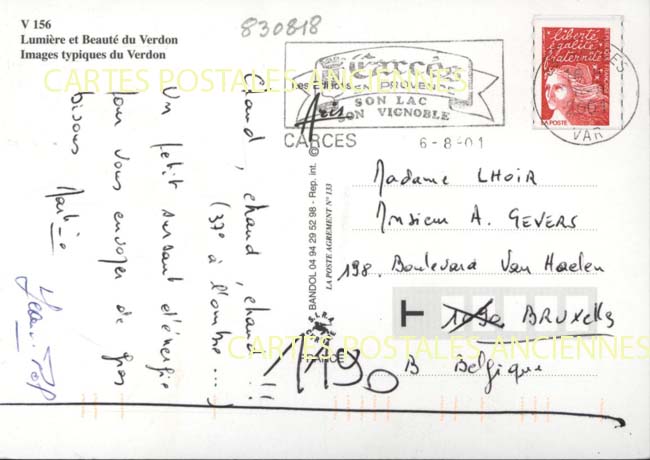 V 156
Lumière et Beauté du Verdon
Images typiques du Verdon
830818
CARTES POSTALES ANCIENNES
Chaud, chaud, chaud!!!
(37° à l'ombre...)
Un petit sursaut d'énergie
pour vous envoyer de gros
bisous Martine
Les Editions
Aris
BANDOL 04 94 29 52 98 - Rep. int. ©
LA POSTE AGREMENT N° 133
Carcès
EN PROVENCE
SON LAC
SON VIGNOBLE
CARCES
6-8-01
VAR
liberté
égalité
fraternité
LA POSTE
Madame LHOIR
Monsieur A. GEVERS
198. Boulevard Van Haelen
T 1090 BRUXELLES
1190
B Belgique
CARTES POSTALES ANCIENNES